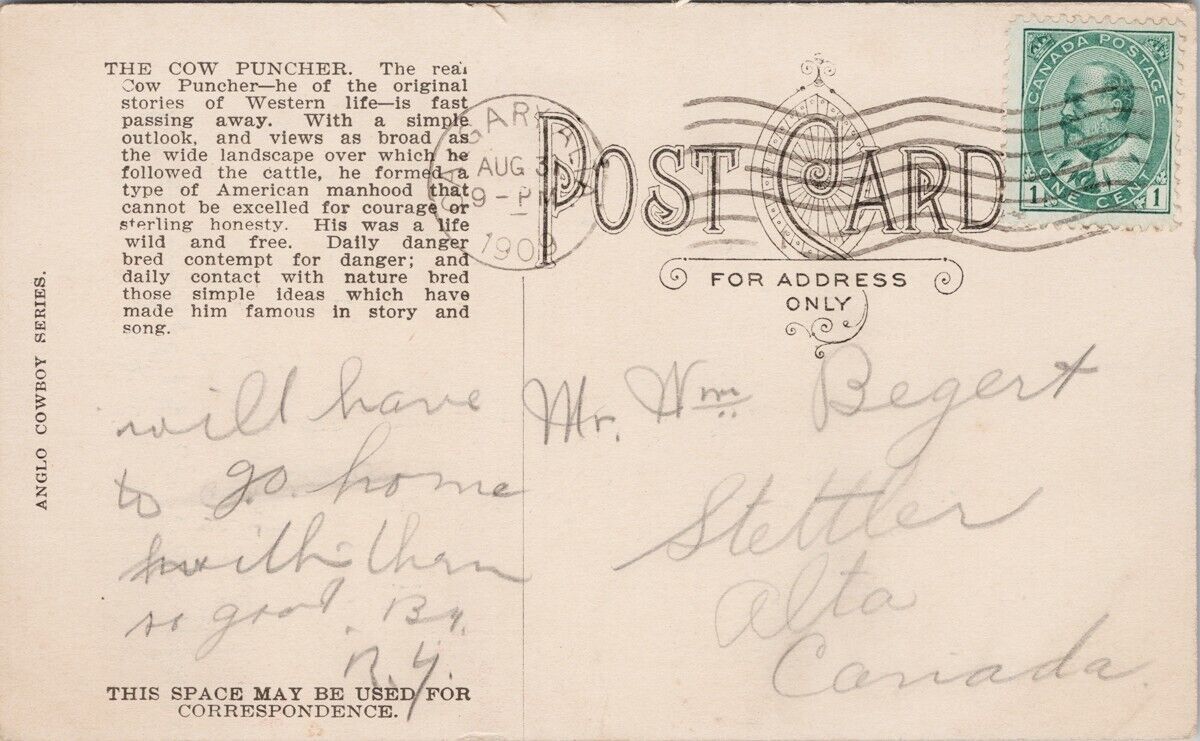 THE COW PUNCHER. The real
Cow Puncher—he of the original
stories of Western life—is fast
passing away. With a simple
outlook, and views as broad as
the wide landscape over which he
followed the cattle, he formed a
type of American manhood that
cannot be excelled for courage or
sterling honesty. His was a life
wild and free. Daily danger
bred contempt for danger; and
daily contact with nature bred
those simple ideas which have
made him famous in story and
song.
ANGLO COWBOY SERIES.
will have
to go home
with them
so good. By.
R.Y.
THIS SPACE MAY BE USED FOR
CORRESPONDENCE.
CALGARY, ALTA
AUG 3
9 - PM
1909
POST CARD
FOR ADDRESS
ONLY
CANADA POSTAGE
1 ONE CENT 1
Mr. Wm Begert
Stettler
Alta
Canada